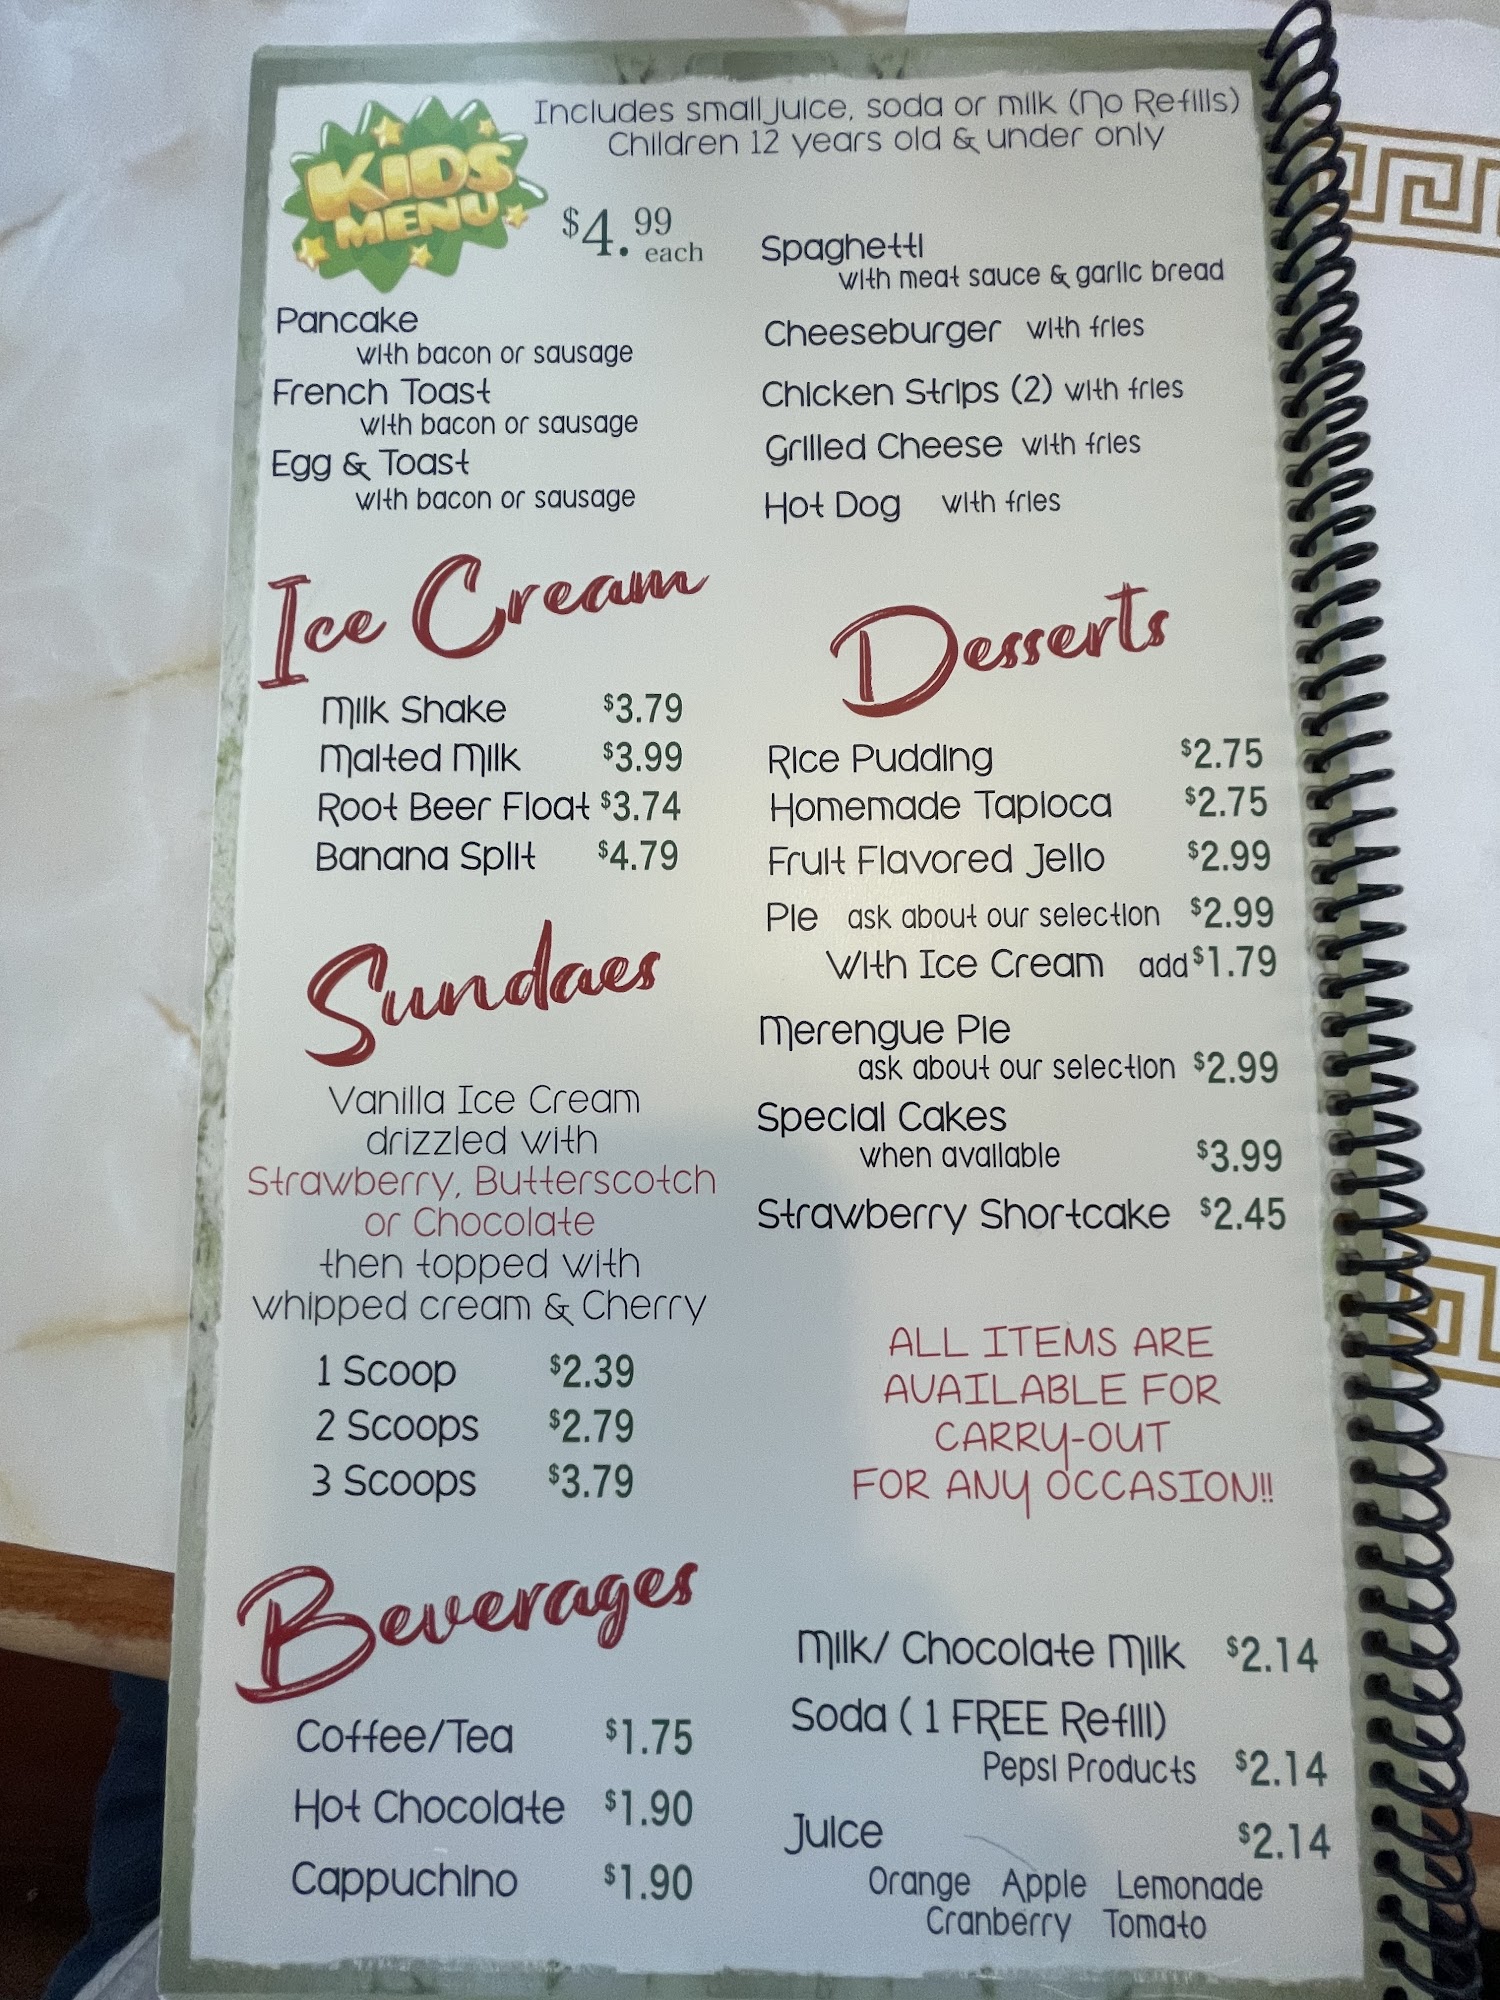 KIDS
MENU
Includes small juice, soda or milk (No Refills)
Children 12 years old & under only
$4.99 each
Pancake
with bacon or sausage
French Toast
with bacon or sausage
Egg & Toast
with bacon or sausage
Spaghetti
with meat sauce & garlic bread
Cheeseburger with fries
Chicken Strips (2) with fries
Grilled Cheese with fries
Hot Dog with fries
Ice Cream
Milk Shake $3.79
Malted Milk $3.99
Root Beer Float $3.74
Banana Split $4.79
Sundaes
Vanilla Ice Cream
drizzled with
Strawberry, Butterscotch
or Chocolate
then topped with
whipped cream & Cherry
1 Scoop $2.39
2 Scoops $2.79
3 Scoops $3.79
Desserts
Rice Pudding $2.75
Homemade Tapioca $2.75
Fruit Flavored Jello $2.99
Pie ask about our selection $2.99
With Ice Cream add $1.79
Merengue Pie
ask about our selection $2.99
Special Cakes
when available $3.99
Strawberry Shortcake $2.45
ALL ITEMS ARE
AVAILABLE FOR
CARRY-OUT
FOR ANY OCCASION!!
Beverages
Coffee/Tea $1.75
Hot Chocolate $1.90
Cappuchino $1.90
Milk/ Chocolate Milk $2.14
Soda ( 1 FREE Refill)
Pepsi Products $2.14
Juice $2.14
Orange Apple Lemonade
Cranberry Tomato